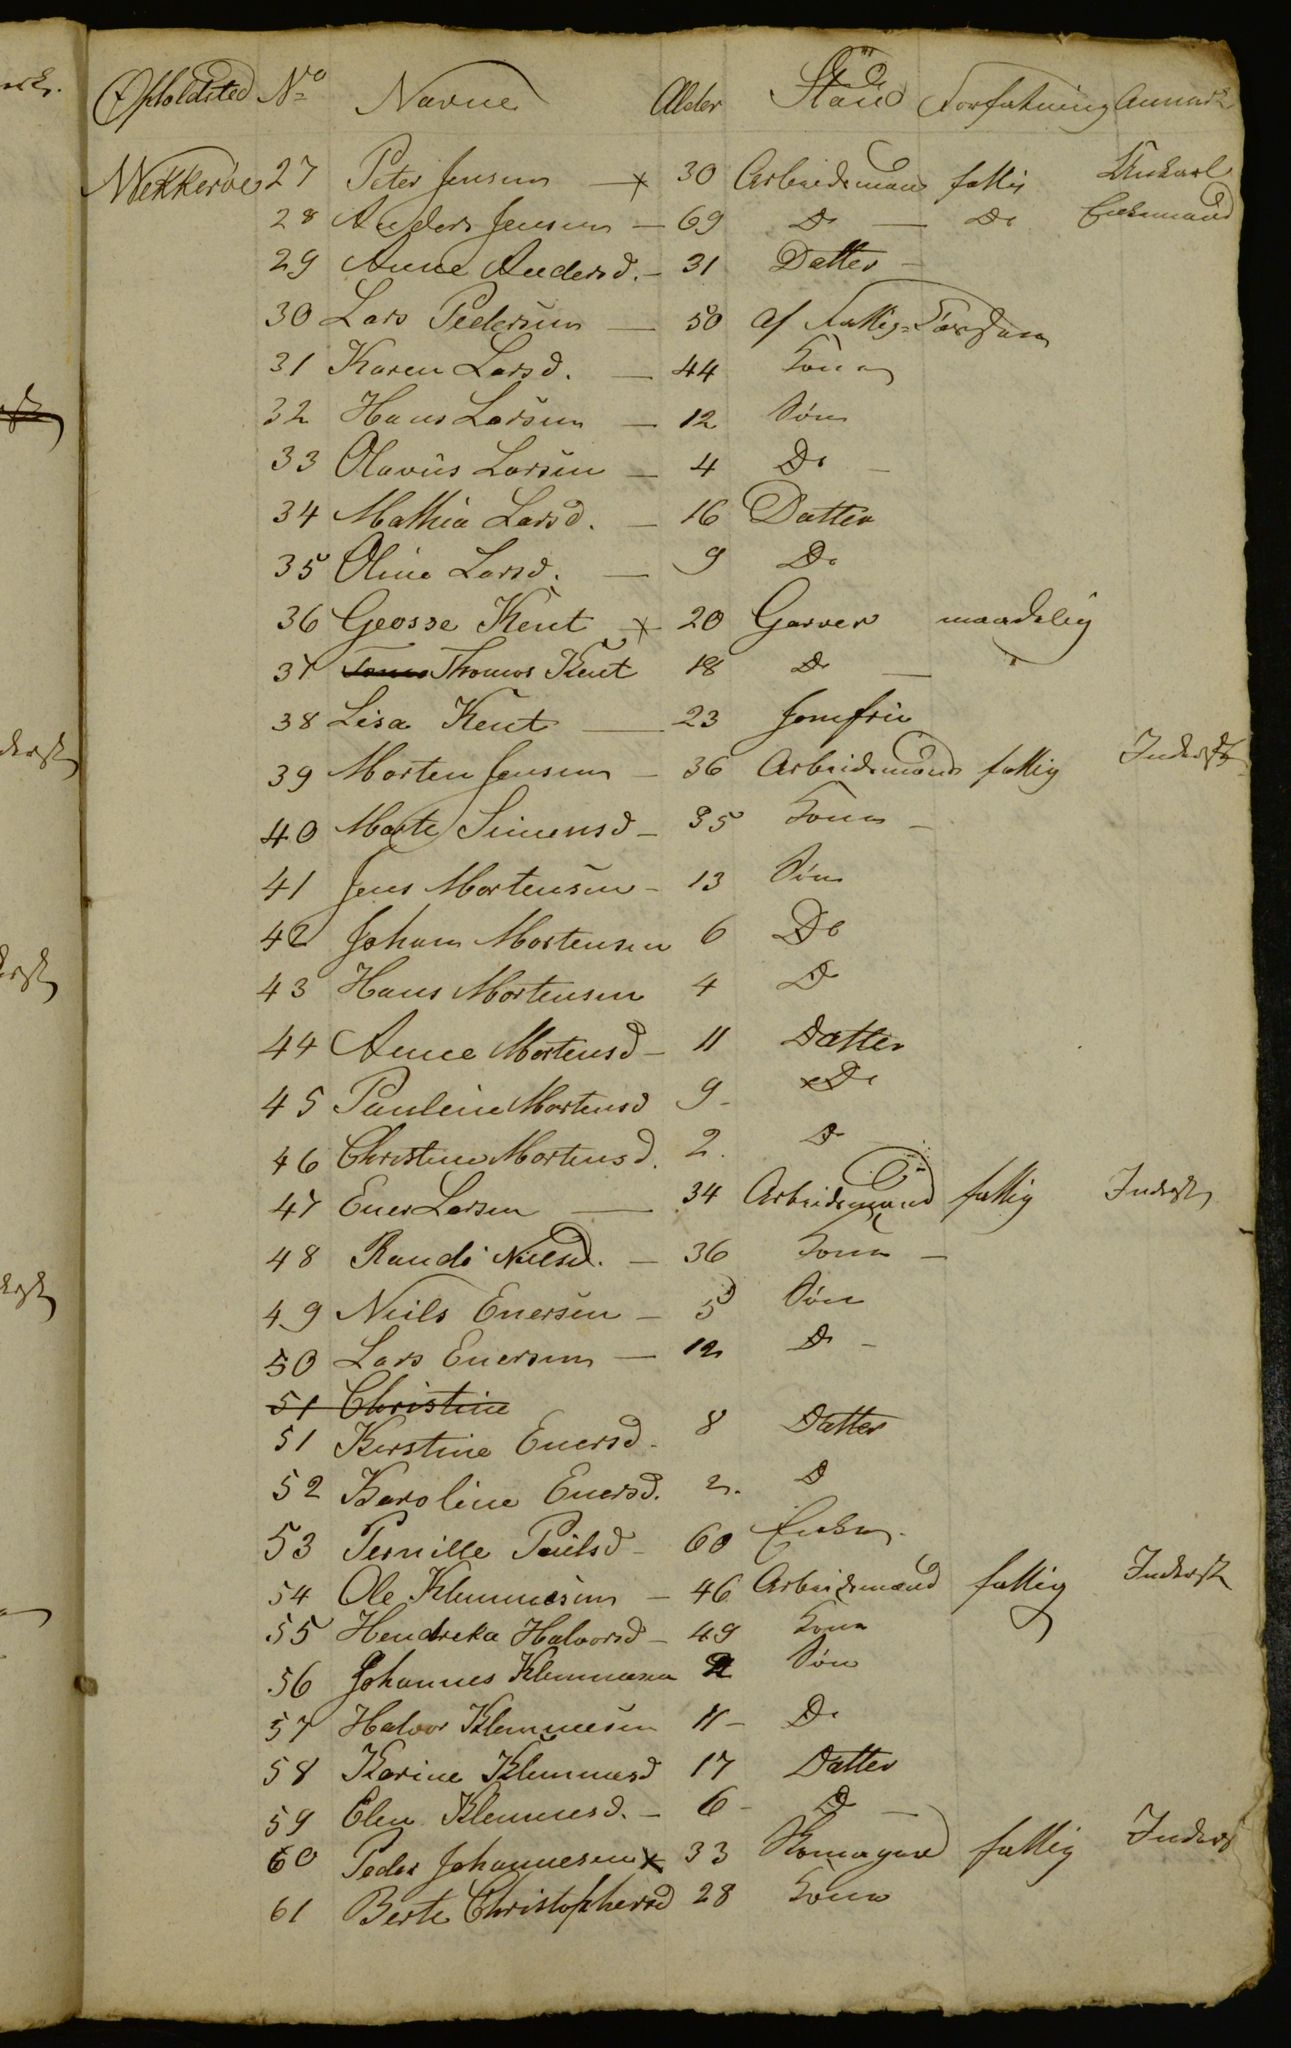 Opholdsted No Navne Alder Stand Forfatning Anmerk
Wekkeröe 27 Peter Jensen — x 30 Arbeidsmand fattig
28 Anders Jensen — 69 Do — Do Enkemand
29 Anne Andersd. — 31 Datter —
30 Lars Pedersen — 50 af Fattig-
31 Karen Larsd. — 44 Kone
32 Hans Larsen — 12 Søn
33 Olavus Larsen — 4 Do —
34 Mathia Larsd. — 16 Datter
35 Oline Larsd. — 9 Do
36 Geosse Kent x 20 Garver maadelig
37 Thomas Kent 18 Do —
38 Lisa Kent — 23 Jomfru
39 Morten Jensen — 36 Arbeidsmand fattig Inderst
40 Marte Simensd — 35 Kone —
41 Jens Mortensen — 13 Søn
42 Johan Mortensen 6 Do
43 Hans Mortensen 4 Do
44 Anne Mortensd — 11 Datter
45 Pauline Mortensd 9 — Do
46 Christine Mortensd. 2. Do
47 Ener Larsen — 34 Arbeidsmand fattig Inderst
48 Randi Nilsd. — 36 Kone —
49 Niels Enersen — 5 Søn
50 Lars Enersen — 12 Do —
51 Christine
51 Kirstine Enersd. 8 Datter
52 Karoline Enersd. 2. D
53 Pernille Paulsd — 60 Enke
54 Ole Klemmesen — 46 Arbeidsmand fattig Inderst
55 Hendreka Halvorsd — 49 Kone
56 Johannes Klemmesen Søn
57 Halvor Klemmesen 11 — Do
58 Karine Klemmesd 17 Datter
59 Elen Klemmesd. — 6 — D —
60 Peder Johannesen x 33 Skomager fattig Inders
61 Berte Christophersd 28 Kone